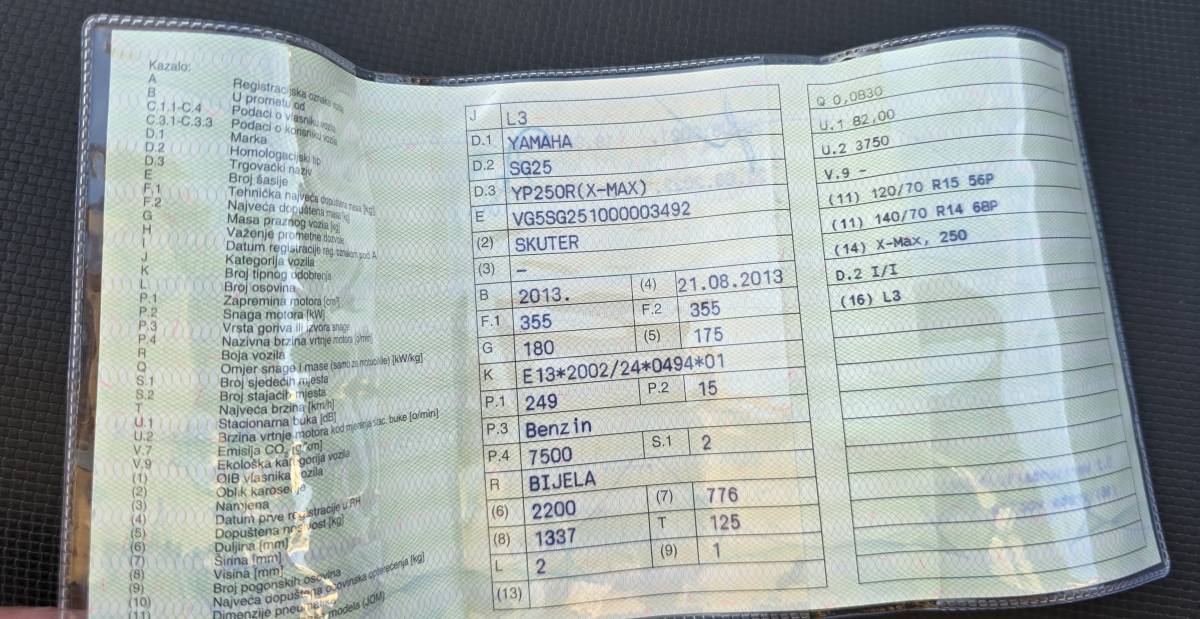 Kazalo:
A Registracijska oznaka vozila
B U prometu od
C.1.1-C.4 Podaci o vlasniku vozila
C.3.1-C.3.3 Podaci o korisniku vozila
D.1 Marka
D.2 Homologacijski tip
D.3 Trgovački naziv
E Broj šasije
F.1 Tehnička najveća dopuštena masa [kg]
F.2 Najveća dopuštena masa [kg]
G Masa praznog vozila [kg]
H Važenje prometne dozvole
I Datum registracije reg. oznakom pod. A
J Kategorija vozila
K Broj tipnog odobrenja
L Broj osovina
P.1 Zapremina motora [cm³]
P.2 Snaga motora [kW]
P.3 Vrsta goriva ili izvora snage
P.4 Nazivna brzina vrtnje motora [o/min]
R Boja vozila
Q Omjer snage i mase (samo za motocikle) [kW/kg]
S.1 Broj sjedećih mjesta
S.2 Broj stajaćih mjesta
T Najveća brzina [km/h]
U.1 Stacionarna buka [dB]
U.2 Brzina vrtnje motora kod mjerenja stac. buke [o/min]
V.7 Emisija CO₂
V.9 Ekološka kategorija vozila
(1) OIB vlasnika vozila
(2) Oblik karoserije
(3) Namjena
(4) Datum prve registracije u RH
(5) Dopuštena nosivost [kg]
(6) Duljina [mm]
(7) Širina [mm]
(8) Visina [mm]
(9) Broj pogonskih osovina
(10) Najveća dopuštena osovinska opterećenja [kg]
(11) Dimenzije modela (JOM)
J L3
D.1 YAMAHA
D.2 SG25
D.3 YP250R(X-MAX)
E VG5SG251000003492
(2) SKUTER
(3) –
B 2013. (4) 21.08.2013
F.1 355 F.2 355
G 180 (5) 175
K E13*2002/24*0494*01
P.1 249 P.2 15
P.3 Benzin
P.4 7500 S.1 2
R BIJELA
(6) 2200 (7) 776
(8) 1337 T 125
L 2 (9) 1
(13)
Q 0,0830
U.1 82,00
U.2 3750
V.9 –
(11) 120/70 R15 56P
(11) 140/70 R14 68P
(14) X-Max, 250
D.2 I/I
(16) L3